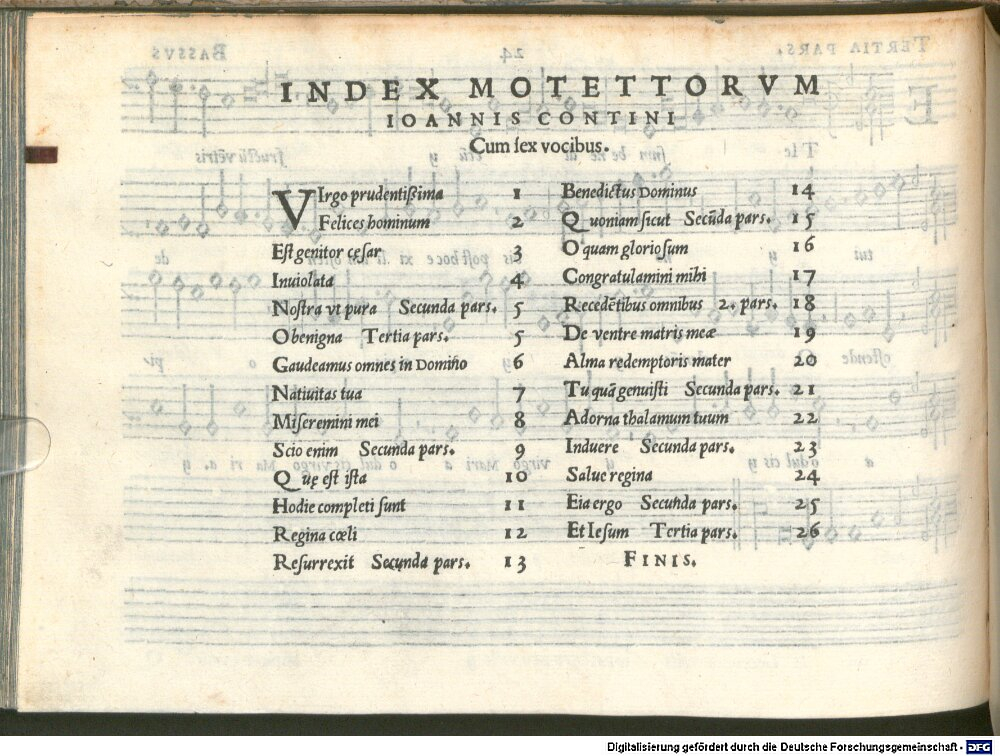 INDEX MOTETTORVM
IOANNIS CONTINI
Cum sex vocibus.
VIrgo prudentißima 1
Felices hominum 2
Est genitor cęsar 3
Inuiolata 4
Nostra vt pura Secunda pars. 5
O benigna Tertia pars. 5
Gaudeamus omnes in Domiño 6
Natiuitas tua 7
Miseremini mei 8
Scio enim Secunda pars. 9
Quę est ista 10
Hodie completi sunt 11
Regina cœli 12
Resurrexit Secunda pars. 13
Benedictus Dominus 14
Quoniam sicut Secūda pars. 15
O quam gloriosum 16
Congratulamini mihi 17
Recedētibus omnibus 2. pars. 18
De ventre matris meæ 19
Alma redemptoris mater 20
Tu quā genuisti Secunda pars. 21
Adorna thalamum tuum 22
Induere Secunda pars. 23
Salue regina 24
Eia ergo Secunda pars. 25
Et Iesum Tertia pars. 26
FINIS.
Digitalisierung gefördert durch die Deutsche Forschungsgemeinschaft - DFG